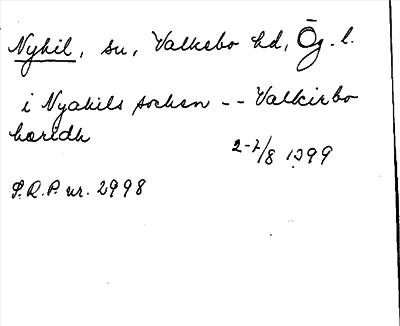 Nykil, su, Valkebo hd, Ög. l.
i Nyakils sochen -- Valkirbo
hæredh
2-7/8 1399
S.R.P. nr. 2998